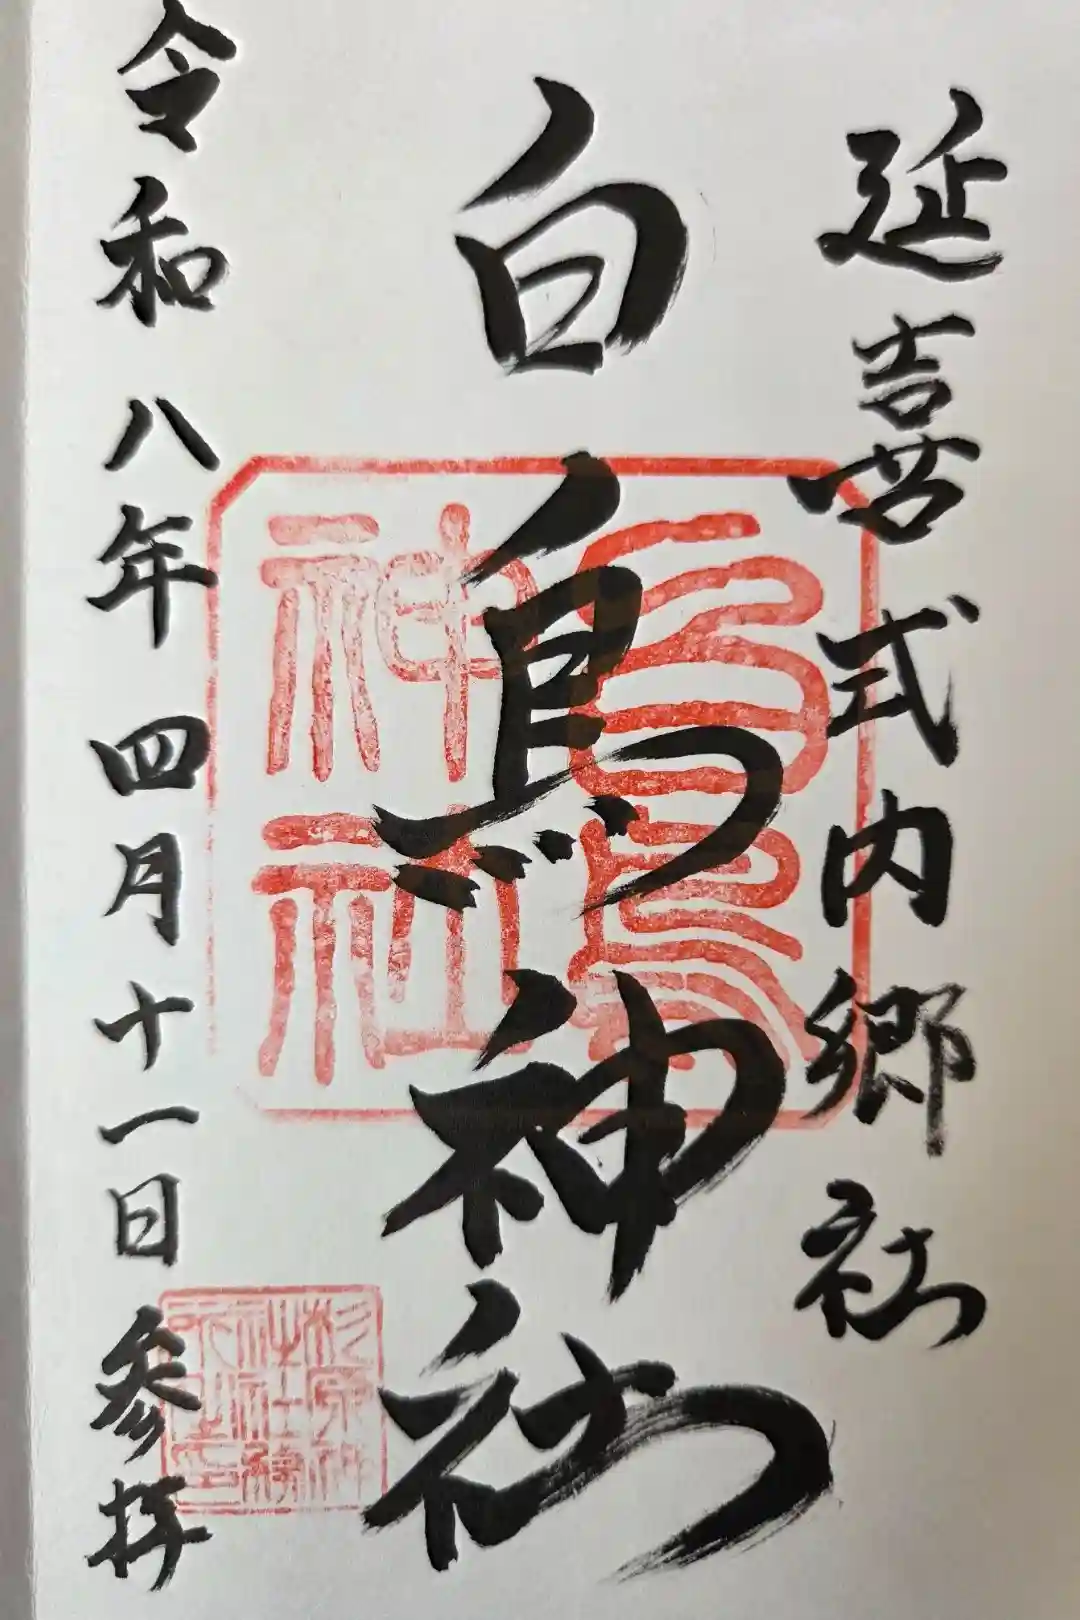 延喜式内郷社
白鳥神社
令和八年四月十一日参拝
白鳥
神社